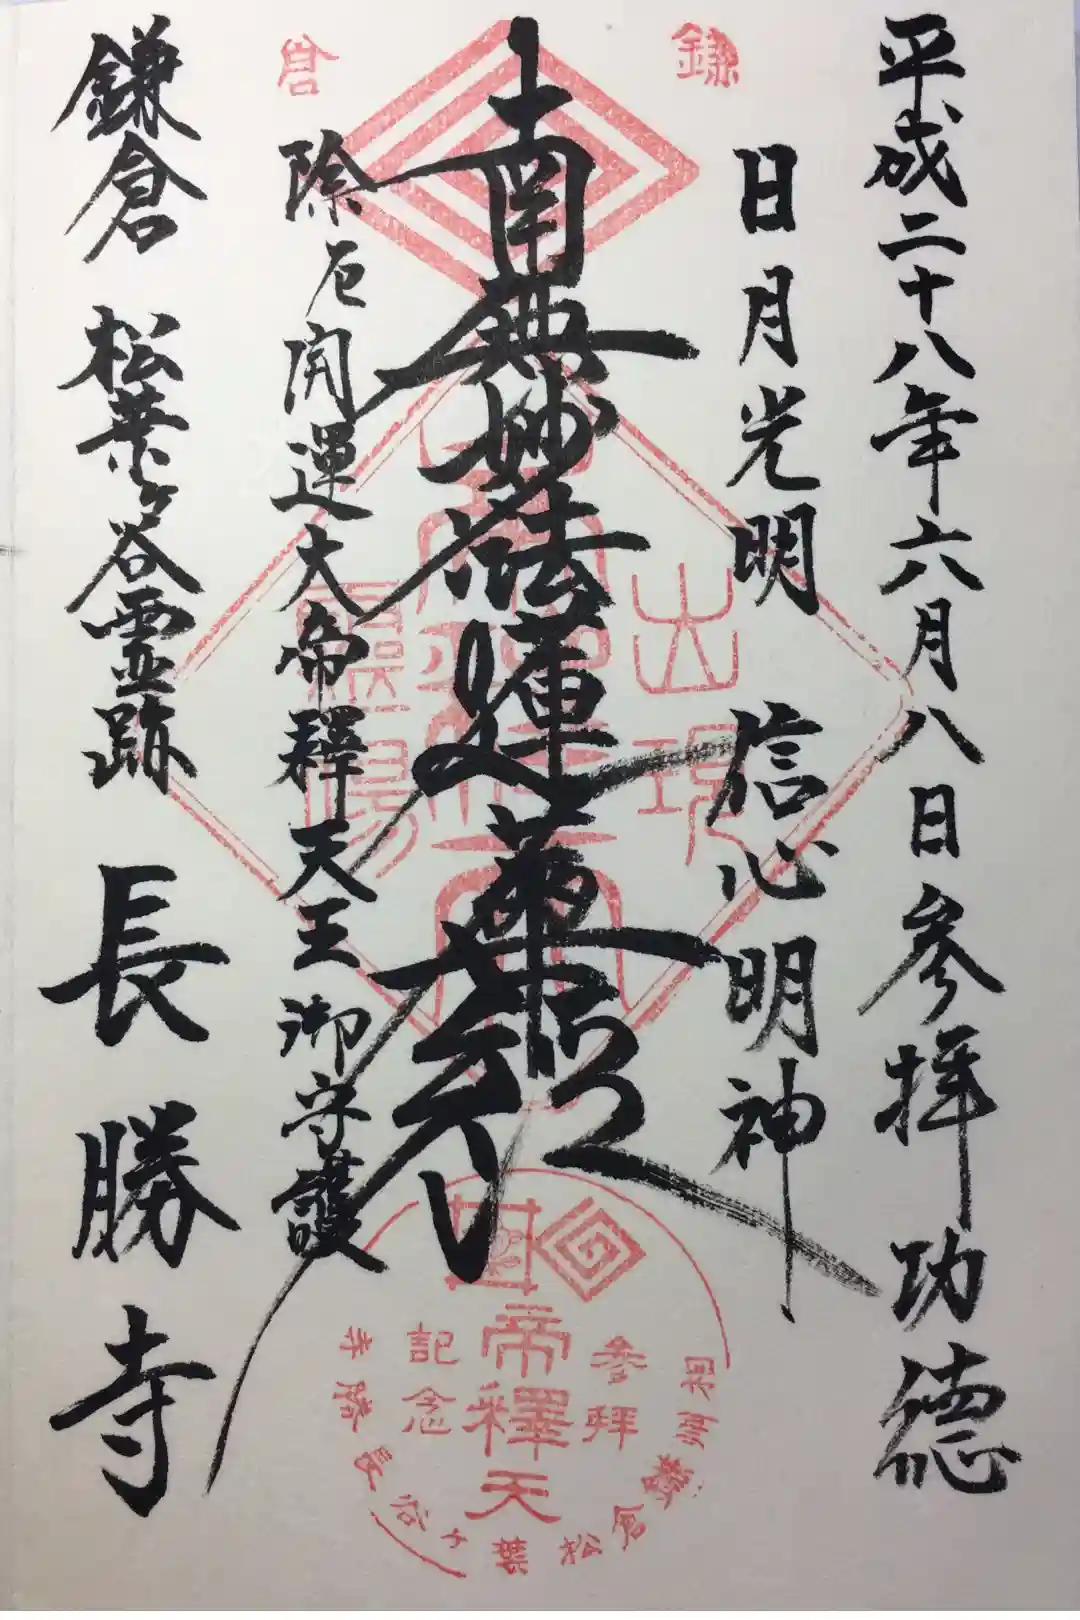 平成二十八年六月八日参拝功徳
日月光明 信心明神
鎌倉
南無妙法蓮華経
除厄開運大帝釋天王御守護
鎌倉 松葉ヶ谷霊跡 長勝寺
出現
靈場
帝釋天
参拝
記念
鎌倉松葉ヶ谷長勝寺